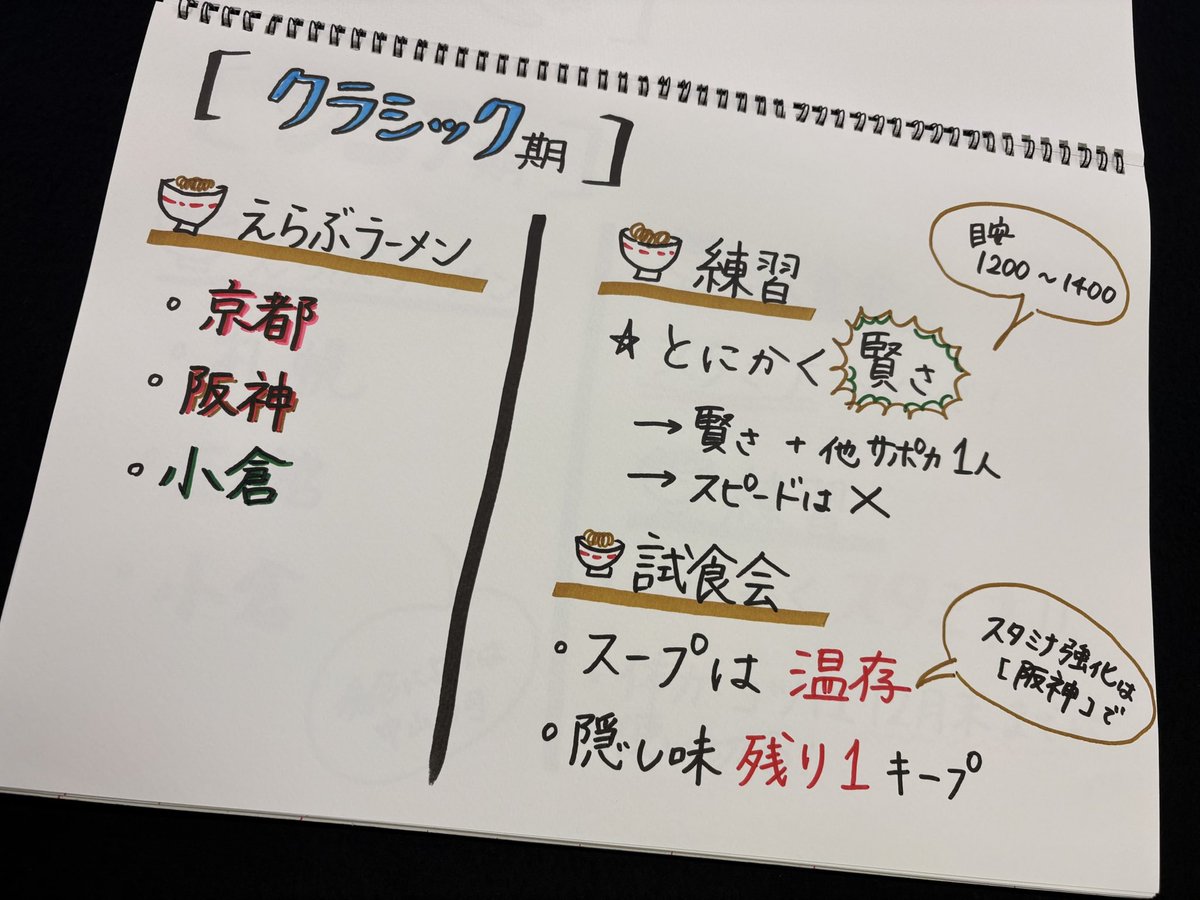 [クラシック期]
えらぶラーメン
・京都
・阪神
・小倉
練習
目安
1200〜1400
☆とにかく賢さ
→賢さ+他サポカ1人
→スピードは×
試食会
・スープは温存
スタミナ強化は
「阪神」で
・隠し味残り1キープ